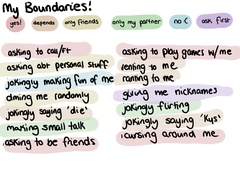 My Boundaries!
yes! depends only friends only my partner no :( ask first
asking to call/FT
asking abt personal stuff
jokingly making fun of me
dming me randomly
jokingly saying 'die'
making small talk
asking to be friends
asking to play games w/me
venting to me
ranting to me
giving me nicknames
jokingly flirting
jokingly saying 'kys'
cursing around me